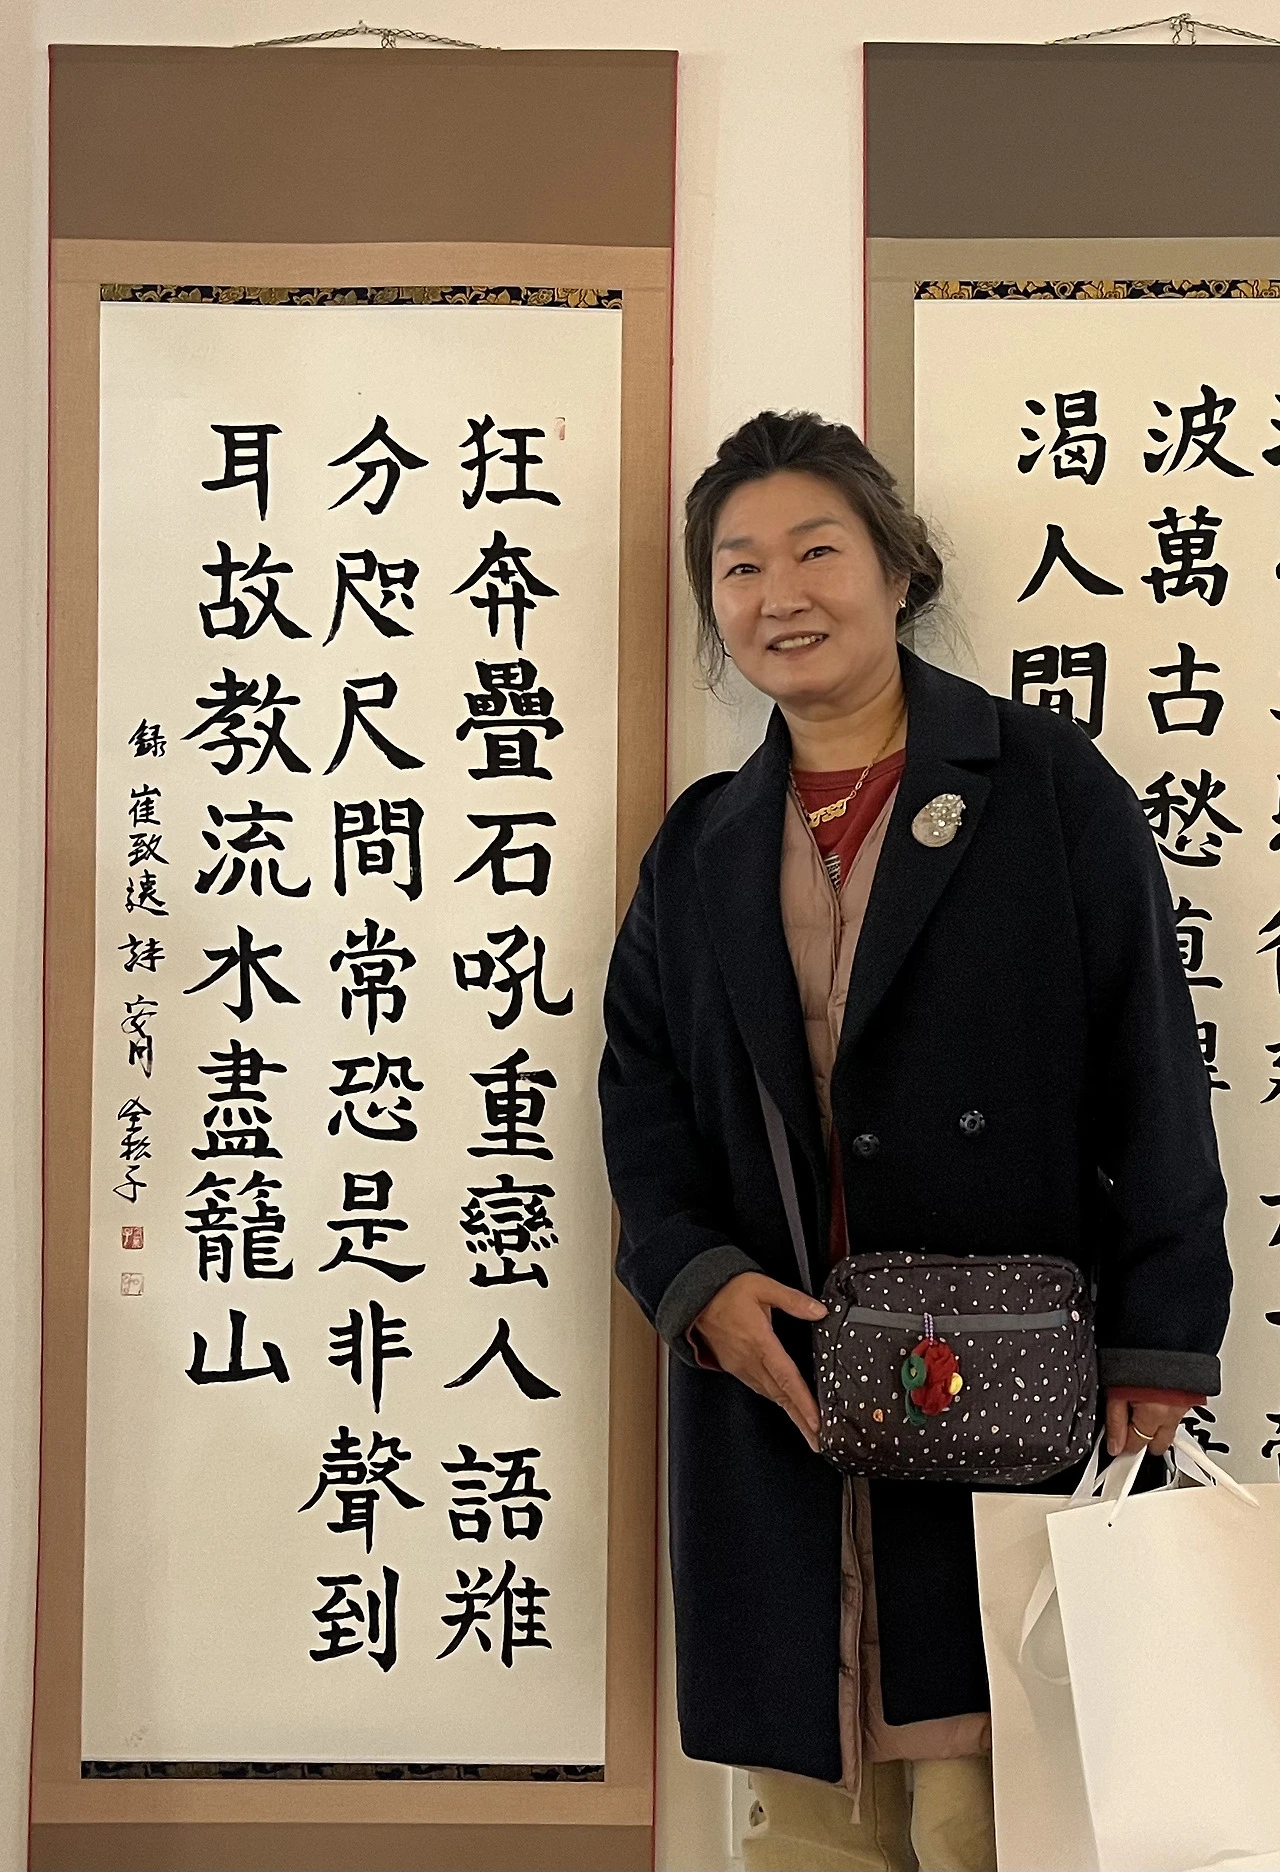 狂奔疊石吼重巒人語難
分咫尺間常恐是非聲到
耳故教流水盡籠山
錄崔致遠詩
波萬古愁直
渴人間